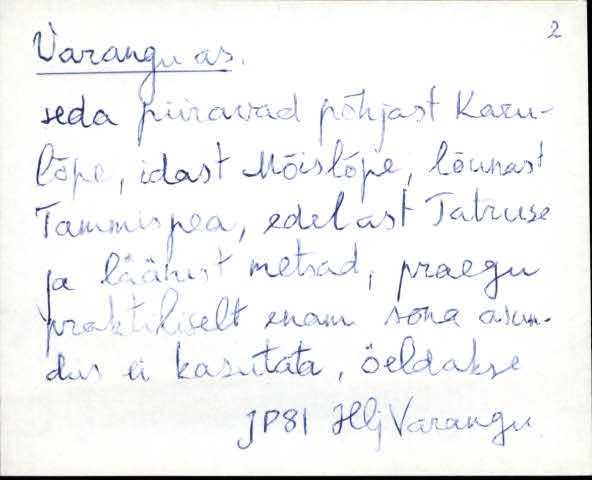 2
Varangu as.
seda piiravad põhjast Karu-
lõpe, idast Mõislõpe, lõunast
Tammispea, edelast Tatruse
ja läänest metsad, praegu
praktiliselt enam sõna asun-
dus ei kasutata, öeldakse
JP81 Hlj Varangu